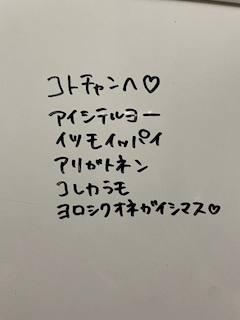 コトチャンへ♡
アイシテルヨー
イツモイッパイ
アリガトネン
コレカラモ
ヨロシクオネガイシマス♡